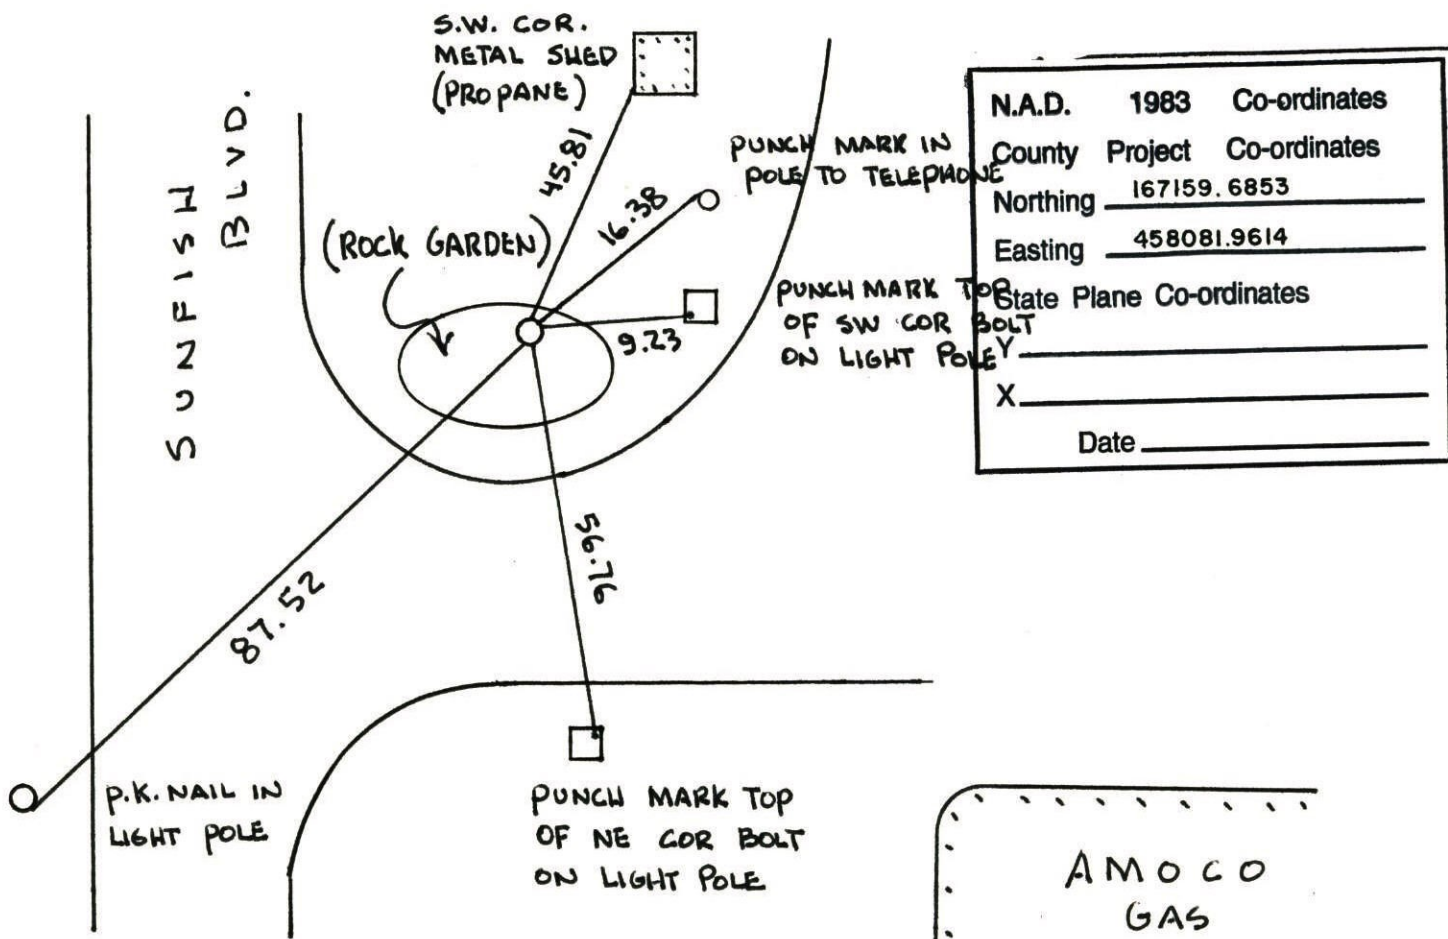 S.W. COR.
METAL SHED
(PROPANE)
SUNFISH
BLVD.
45.81
PUNCH MARK IN
POLE TO TELEPHONE
16.38
(ROCK GARDEN)
PUNCH MARK TOP
OF SW COR BOLT
ON LIGHT POLE
9.23
N.A.D. 1983 Co-ordinates
County Project Co-ordinates
Northing 167159.6853
Easting 458081.9614
State Plane Co-ordinates
Y
X
Date
87.52
56.76
P.K. NAIL IN
LIGHT POLE
PUNCH MARK TOP
OF NE COR BOLT
ON LIGHT POLE
AMOCO
GAS